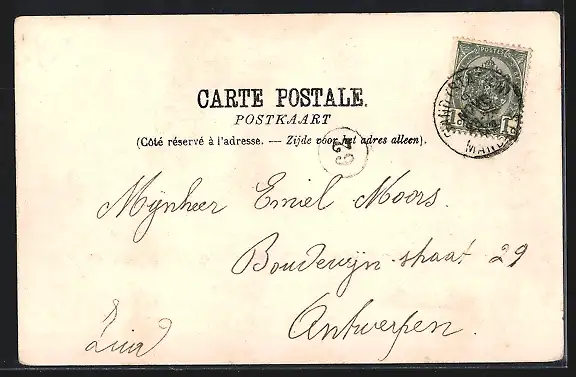 CARTE POSTALE.
POSTKAART
(Côté réservé à l'adresse. — Zijde vóór het adres alleen).
29
Mÿnheer Emiel Moors.
Boudewÿn-straat 29
Antwerpen.